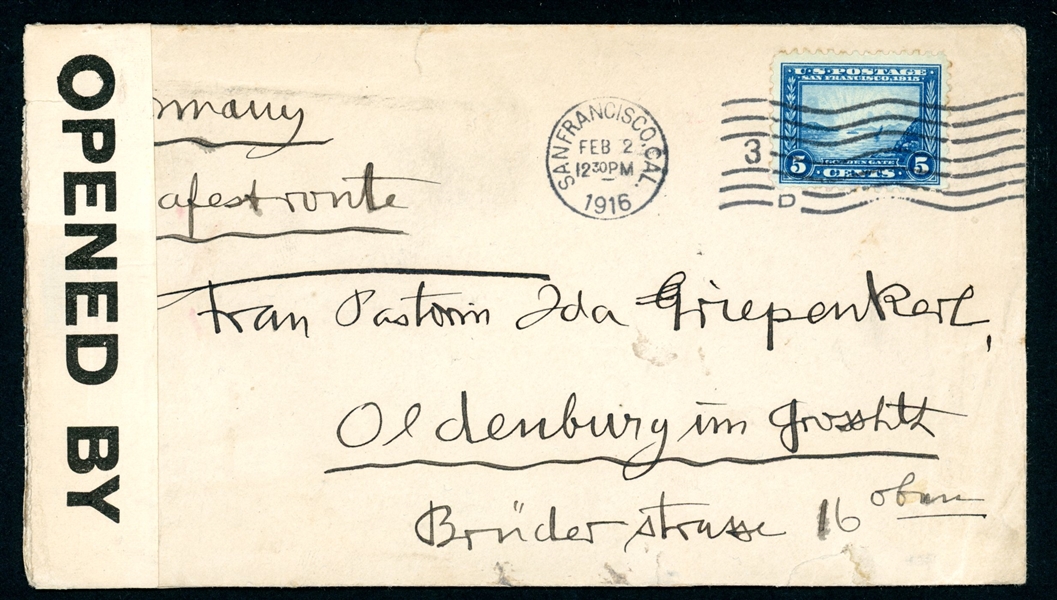 OPENED BY
rmany
afest route
SAN FRANCISCO, CAL.
FEB 2
12 30 PM
1916
3
D
U.S. POSTAGE
SAN FRANCISCO, 1915
GOLDEN GATE
5 CENTS 5
Frau Pastorin Ida Griepenkerl,
Oldenburg im Grosshtt
Brüder strasse 16 oben